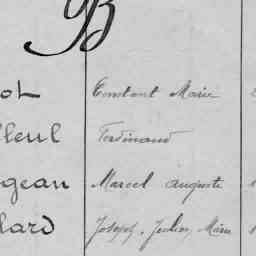 B
ot Constant Marie
lleul Ferdinand
geau Marcel Auguste
lard Joseph, Julien, Marie